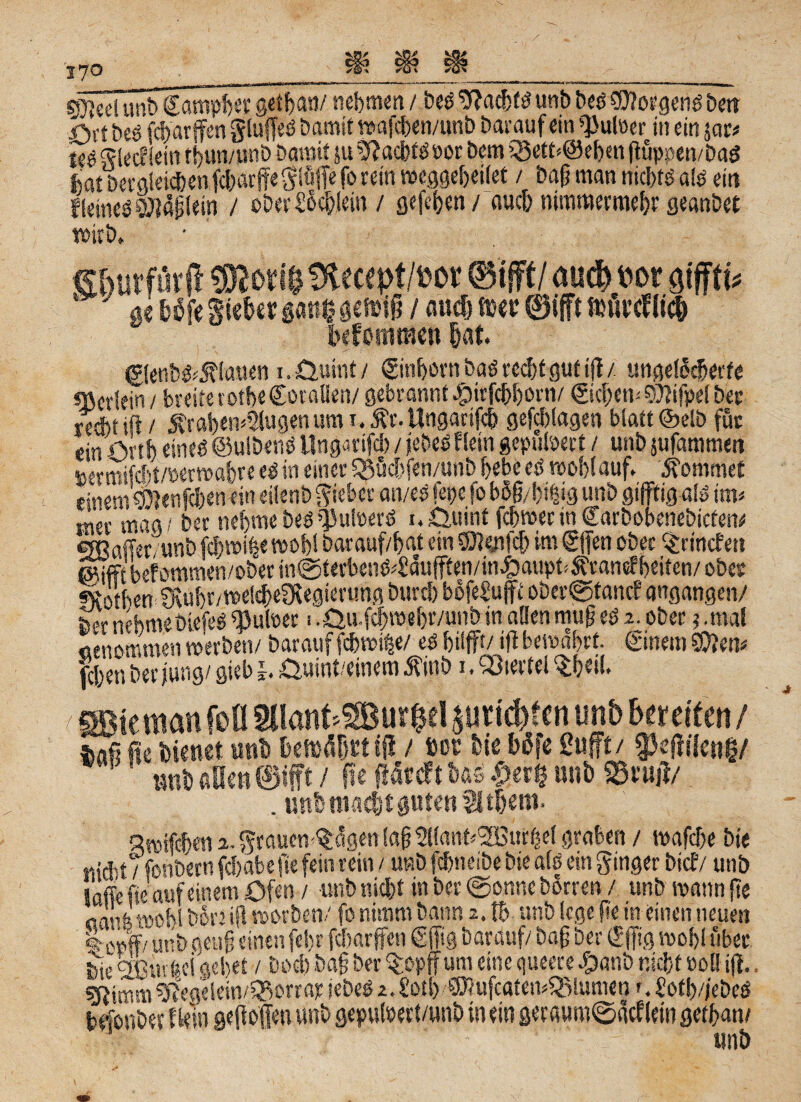 170
Meel und Campher gethan/ nehmen / des Nachts und des Morgens den
Ort des scharffen Flusses damit waschen/und darauf ein Pulver in ein zar-
tes Flecklein thun/und damit zu Nachts vor dem Bett-Gehen stüppen/das
hat dergleichen scharffe Flüsse so rein weggeheilet / daß man nichts als ein
kleines Mäßlein / oder Löchlein / gesehen / auch nimmermehr geandet
wird.
Churfürst Moritz Recept/vor Gifft/ auch vor giffti-
ge böse Fieber gantz gewiß / auch wer Gifft würcklich
bekommen hat.
Elends-Klauen 1. Quint / Einhorn das recht gut ist / ungelöcherte
Perlein / breite rothe Corallen/ gebrannt Hirschhorn/ Eichen-Mispel der
recht ist / Krahen-Augen um 1. Kr. Ungarisch geschlagen blatt Geld für
ein Orth eines Guldens Ungarisch / jedes klein gepülvert / und zusammen
vermischt/verwahre es in einer Büchsen/und hebe es wohl auf. Kommet
einem Menschen ein eilend Fieber an/es seye so böß/hitzig und gifftig als im-
mer mag / der nehme des Pulvers 1. Quint schwer in Cardobenedicten-
Wasser/und schwitze wohl darauf/hat ein Mensch im Essen oder Trincken
Gifft bekommen/oder in Sterbens-Läufften/in Haupt-Kranckheiten/ oder
Rothen Ruhr/welche Regierung durch böse Lufft oder Stanck angangen/
der nehme dieses Pulver 1. Qu. schwehr/und in allen muß es 2. oder 3. mal
genommen werden/ darauf schwitze/ es hilfft/ ist bewährt. Einem Men-
schen der jung/ gieb ½. Quint/einem Kind 1. Viertel Theil.
Wie man soll Allant-Wurtzel zurichten und bereiten /
daß sie dienet und bewährt ist / vor die böse Lufft/ Pestilentz/
und allen Gifft / sie stärckt das Hertz und Brust/
und macht guten Athem.
Zwischen 2. Frauen-Tägen laß Allant-Wurtzel graben / wasche die
nicht / sondern schabe sie fein rein / und schneide die als ein Finger dick/ und
lasse sie auf einem Ofen / und nicht in der Sonne dörren / und wann sie
gantz wohl dörr ist worden/ so nimm dann 2. lb und lege sie in einen neuen
Topff/ und geuß einen sehr scharffen Essig darauf/ daß der Essig wohl über
die Wurtzel gehet / doch daß der Topff um eine queere Hand nicht voll ist.
Nimm Negelein/Borrax jedes 2. Loth Muscaten-Blumen 1. Loth/jedes
besonder klein gestossen und gepulvert/und in ein geraum Säcklein gethan/
und